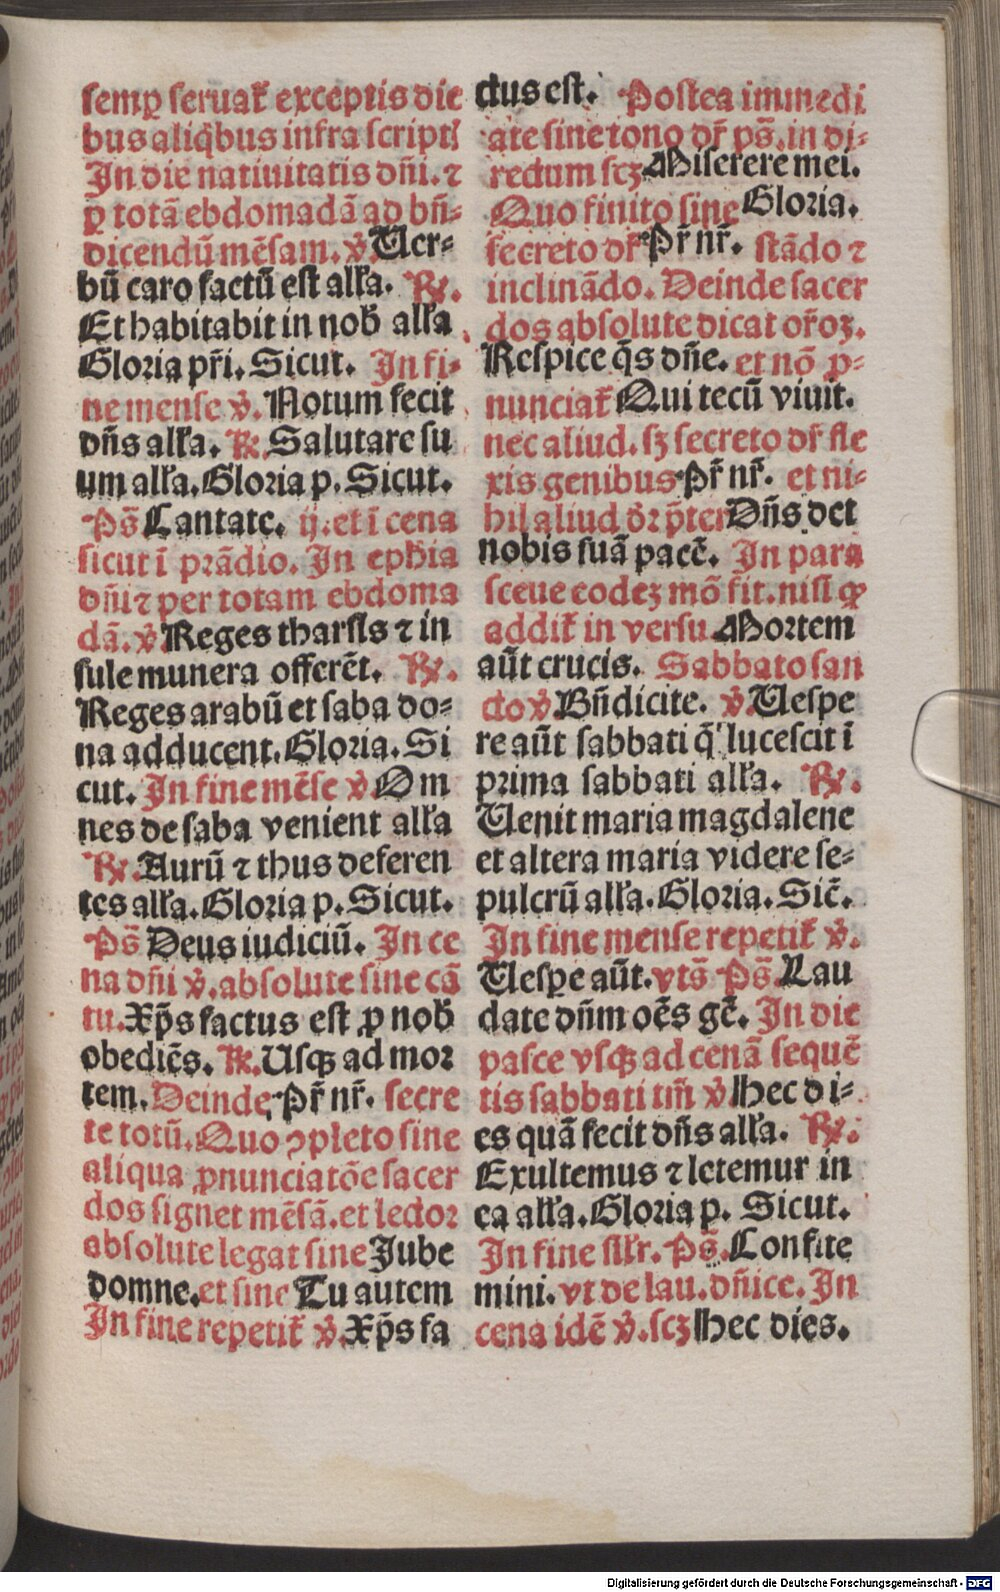 semꝑ seruat᷑ exceptis die
bus aliq̄bus infra scriptꝭ
In die natiuitatis dn̄i. ⁊
ꝑ totā ebdomadā ad bn̄-
dicendū mēsam. v̄. Uer-
bū caro factū est all'a. R̷.
Et habitabit in nob᷑ all'a
Gloria pr̄i. Sicut. In fi-
ne mense v̄. Notum fecit
dn̄s all'a. R̷. Salutare su
um all'a. Gloria p. Sicut.
Ps̄ Cantate. ij. et ī cena
sicut ī prādio. In eph̄ia
dn̄i ⁊ per totam ebdoma
dā. v̄. Reges tharsis ⁊ in
sule munera offerēt. R̷.
Reges arabū et saba do-
na adducent. Gloria. Si
cut. In fine mēse v̄. Om
nes de saba venient all'a
R̷. Aurū ⁊ thus deferen
tes all'a. Gloria p. Sicut.
Ps̄ Deus iudiciū. In ce
na dn̄i v̄. absolute sine cā
tu. Xp̄s factus est ꝓ nob᷑
obediēs. R̷. Usqꝫ ad mor
tem. Deinde Pr̄ nr̄. secre
te totū. Quo ꝯpleto sine
aliqua ꝓnunciatōe sacer
dos signet mēsā. et lector
absolute legat sine Jube
domne. et sine Tu autem
In fine repetit᷑ v̄. Xp̄s fa
ctus est. Postea immedi
ate sine tono dr̄ ps̄. in di-
rectum scꝫ Miserere mei.
Quo finito sine Gloria.
secreto dr̄ Pr̄ nr̄. stādo ⁊
inclinādo. Deinde sacer
dos absolute dicat or̄oꝫ.
Respice q̄s dn̄e. et nō p-
nunciat᷑ Qui tecū viuit.
nec aliud. sꝫ secreto dr̄ fle
xis genibus Pr̄ nr̄. et ni-
hil aliud dr̄ p̄ter Dn̄s det
nobis suā pacē. In para
sceue eodeꝫ mō fit. nisi ꝙ
addit᷑ in versu Mortem
aūt crucis. Sabbato san
cto v̄ Bn̄dicite. v̄. Uespe
re aūt sabbati q̄ lucescit ī
prima sabbati all'a. R̷.
Uenit maria magdalene
et altera maria videre se-
pulcrū all'a. Gloria. Sic̄.
In fine mense repetit᷑ v̄.
Uespe aūt. vts̄ Ps̄. Lau
date dn̄m oēs gē. In die
pasce vsqꝫ ad cenā sequē
tis sabbati tm̄ v̄ Hec di-
es quā fecit dn̄s all'a. R̷.
Exultemus ⁊ letemur in
ea all'a. Gloria p. Sicut.
In fine sil'r. Ps̄. Confite
mini. vt de lau. dn̄ice. In
cena idē v̄. scꝫ Hec dies.
Digitalisierung gefördert durch die Deutsche Forschungsgemeinschaft - DFG